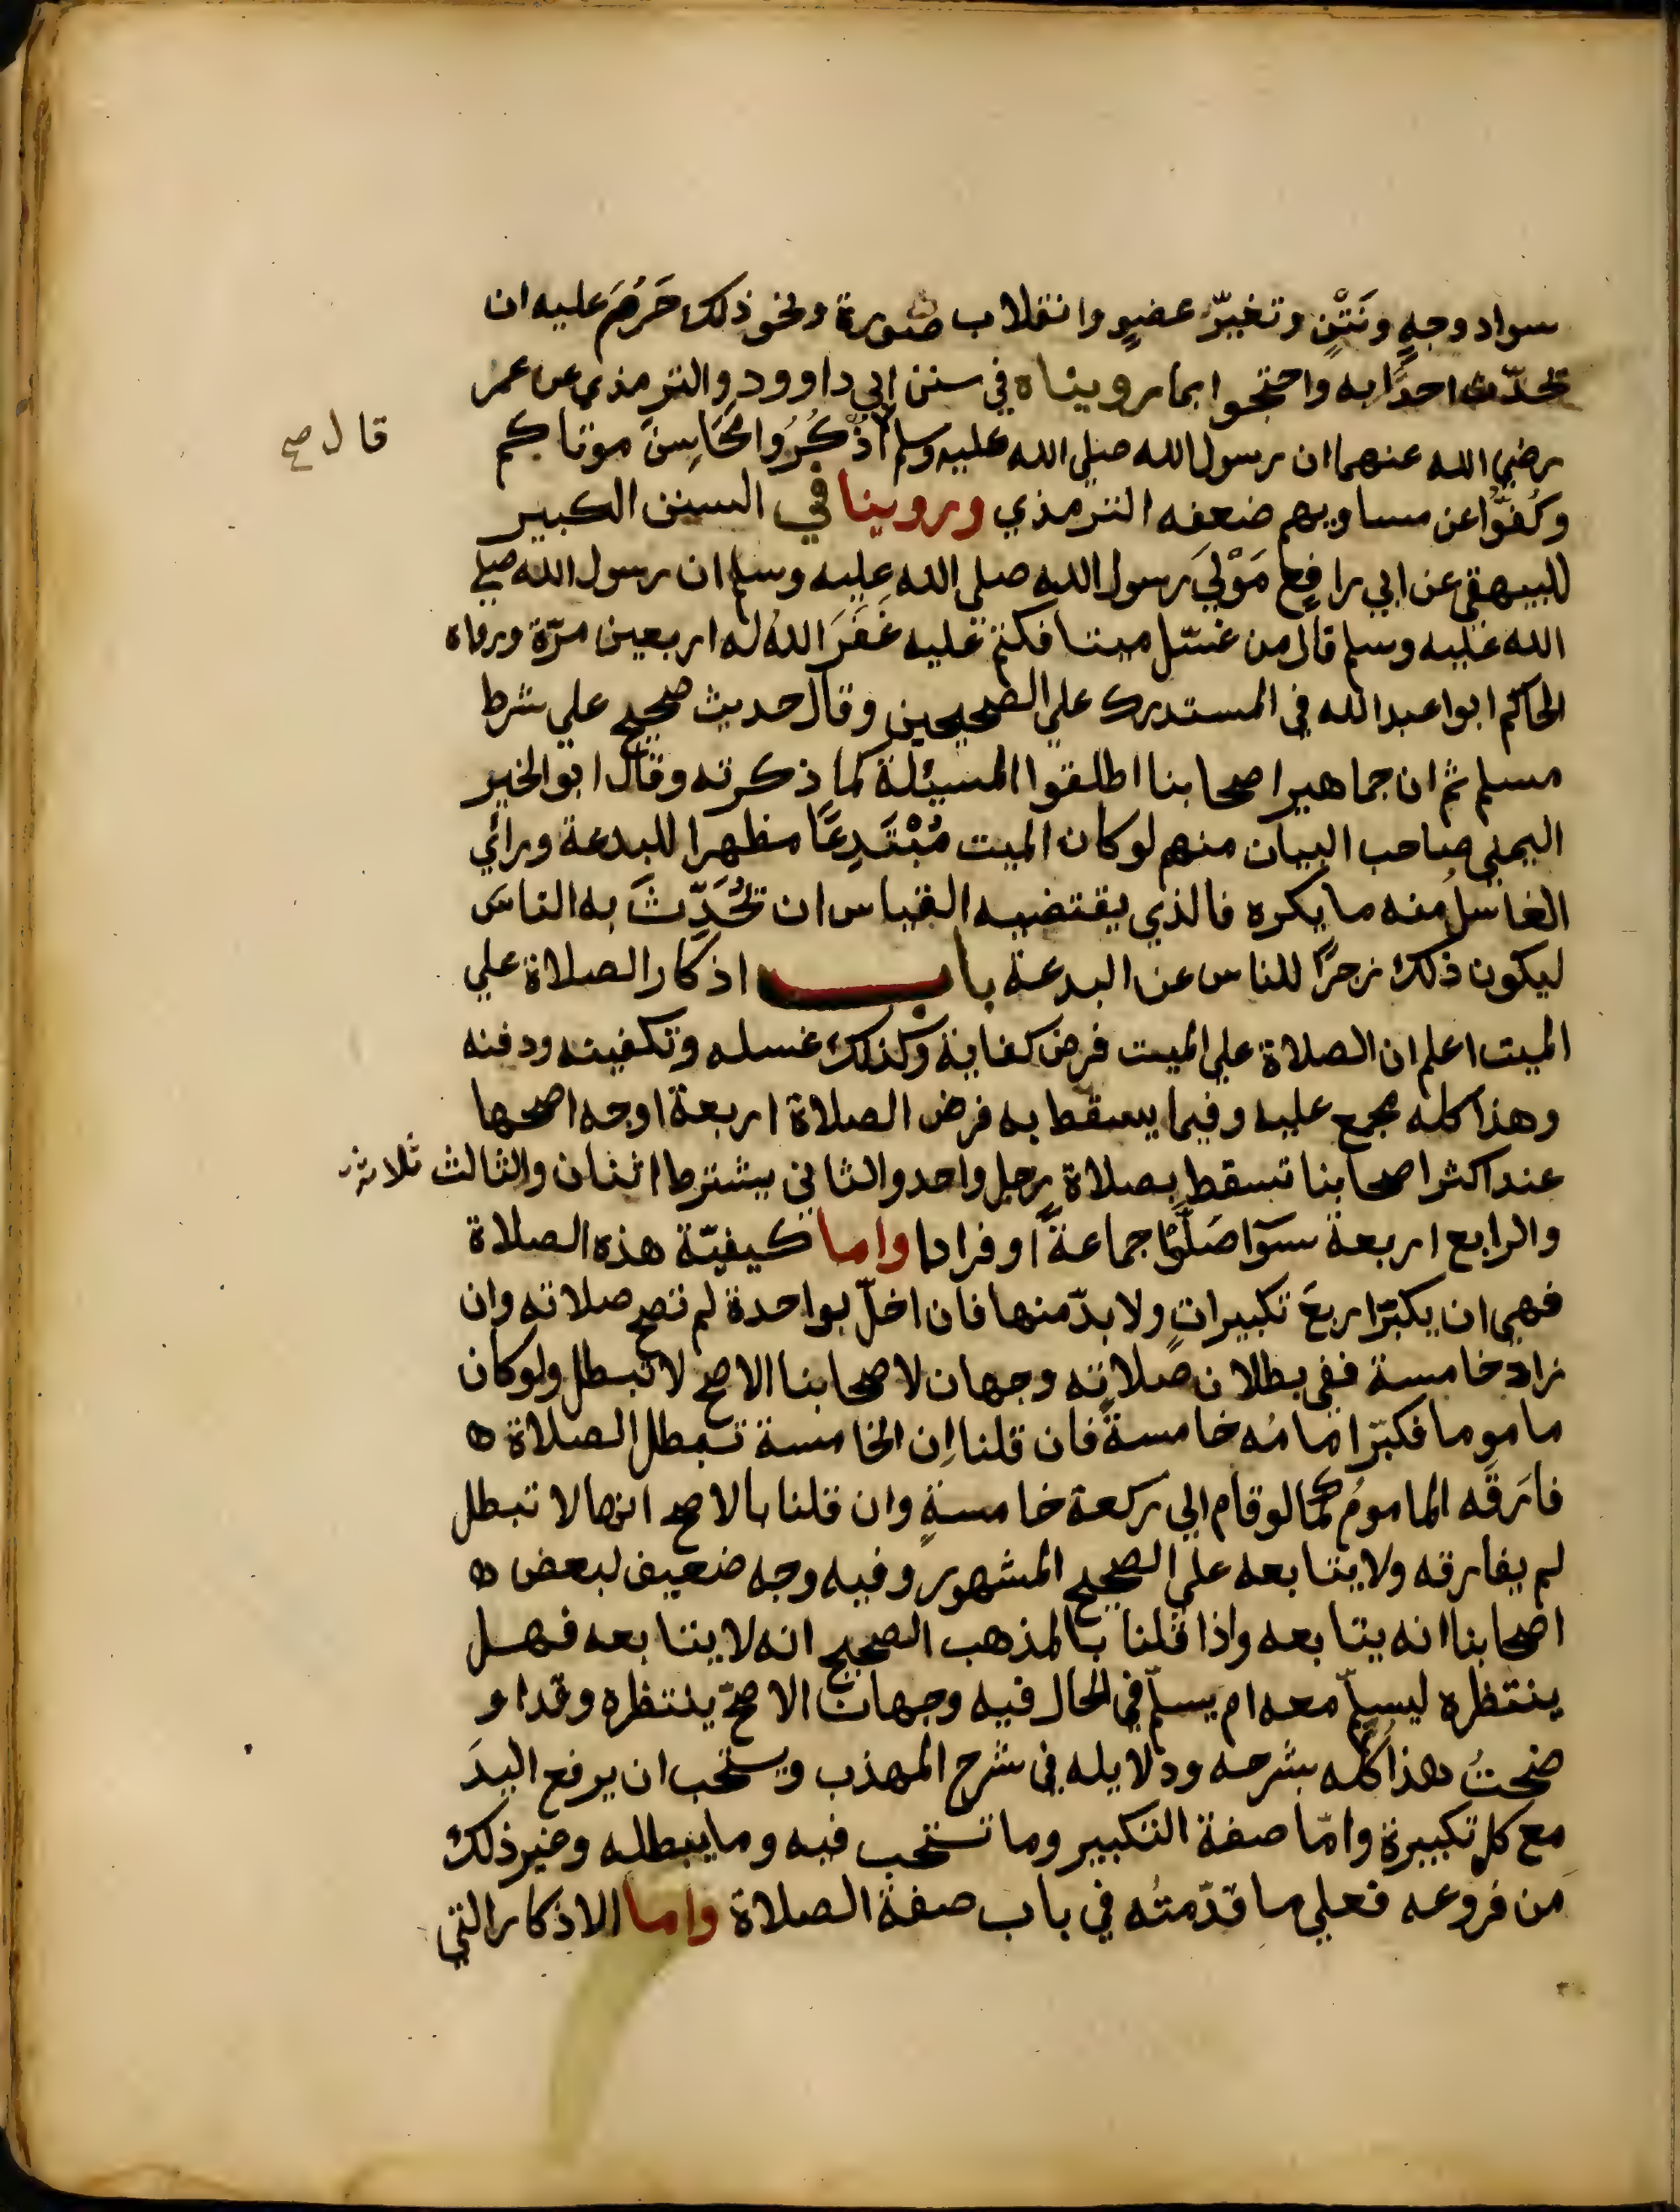 سواد وجهٍ ونَتْنٍ وتغيّر عضوٍ وانقلاب صورة ونحو ذلك حَرُمَ عليه ان
تحدّث احدًا به واحتجوا بما رويناه في سنن ابي داوود والترمذي عن عمر
رضي الله عنهما ان رسول الله صلى الله عليه وسلم اذْكُرُوا مَحَاسِنَ موتاكم
قال صح
وكُفوّا عن مساويهم ضعفه الترمذي وروينا في السنن الكبير
للبيهقي عن ابي رافع مَوْلَي رسول الله صلى الله عليه وسلم ان رسول الله صلي
الله عليه وسلم قال من غسّل ميتا فكتم عليه غَفَرَ اللهُ له اربعين مرّة ورواه
الحاكم ابوا عبد الله في المستدرك علي الصحيحين وقال حديث صحيح علي شرط
مسلم ثم ان جماهير اصحابنا اطلقوا المسئلة كما ذكرته وقال ابو الخير
اليمني صاحب البيان منهم لو كان الميت مُبْتَدِعًا مظهرا للبدعة ورائي
الغاسلُ منه ما يكره فالذي يقتضيه القياس ان تحُدِّثَ به الناس
ليكون ذلك زجرًا للناس عن البدعة باب اذكار الصلاة علي
الميت اعلم ان الصلاة علي الميت فرض كفاية وكذلك غسله وتكفينه ودفنه
وهذا كله مجمع عليه وفيما يسقط به فرض الصلاة اربعة اوجه اصحها
عند اكثر اصحابنا تسقط بصلاة رجل واحد والثاني يشترط اثنان والثالث ثلاثة
والرابع اربعة سوآ صَلَّوْا جماعةً او فرادا واما كيفيّة هذه الصلاة
فهي ان يكبّر اربعَ تكبيراتٍ ولا بدّ منها فان اخلّ بواحدة لم تصح صلاته وان
زاد خامسة ففي بطلان صلاته وجهان لاصحابنا الاصح لا تبطل ولو كان
ماموما فكبّر امامُه خامسةً فان قلنا اِن الخامسة تبطل الصلاة ه
فارَقَه الماموم كما لو قام الي ركعة خامسةٍ وان قلنا بالاصح انها لا تبطل
لم يفارقه ولا يتابعه علي الصحيح المشهور وفيه وجه ضعيف لبعض ه
اصحابنا انه يتابعه واذا قلنا بالمذهب الصحيح انه لا يتابعه فهل
ينتظره ليسلّم معه ام يسلّم في الحال فيه وجهان الاصحّ ينتظره وقد او
ضحتُ هذا كُلّه بشرحه ودلايله في شرح المهذب ويستحب ان يرفع اليدَ
مع كل تكبيرة وامّا صفة التكبير وما تستحب فيه وما يبطله وغير ذلك
من فروعه فعلي ما قدّمتُه في باب صفة الصلاة واما الاذكار التي